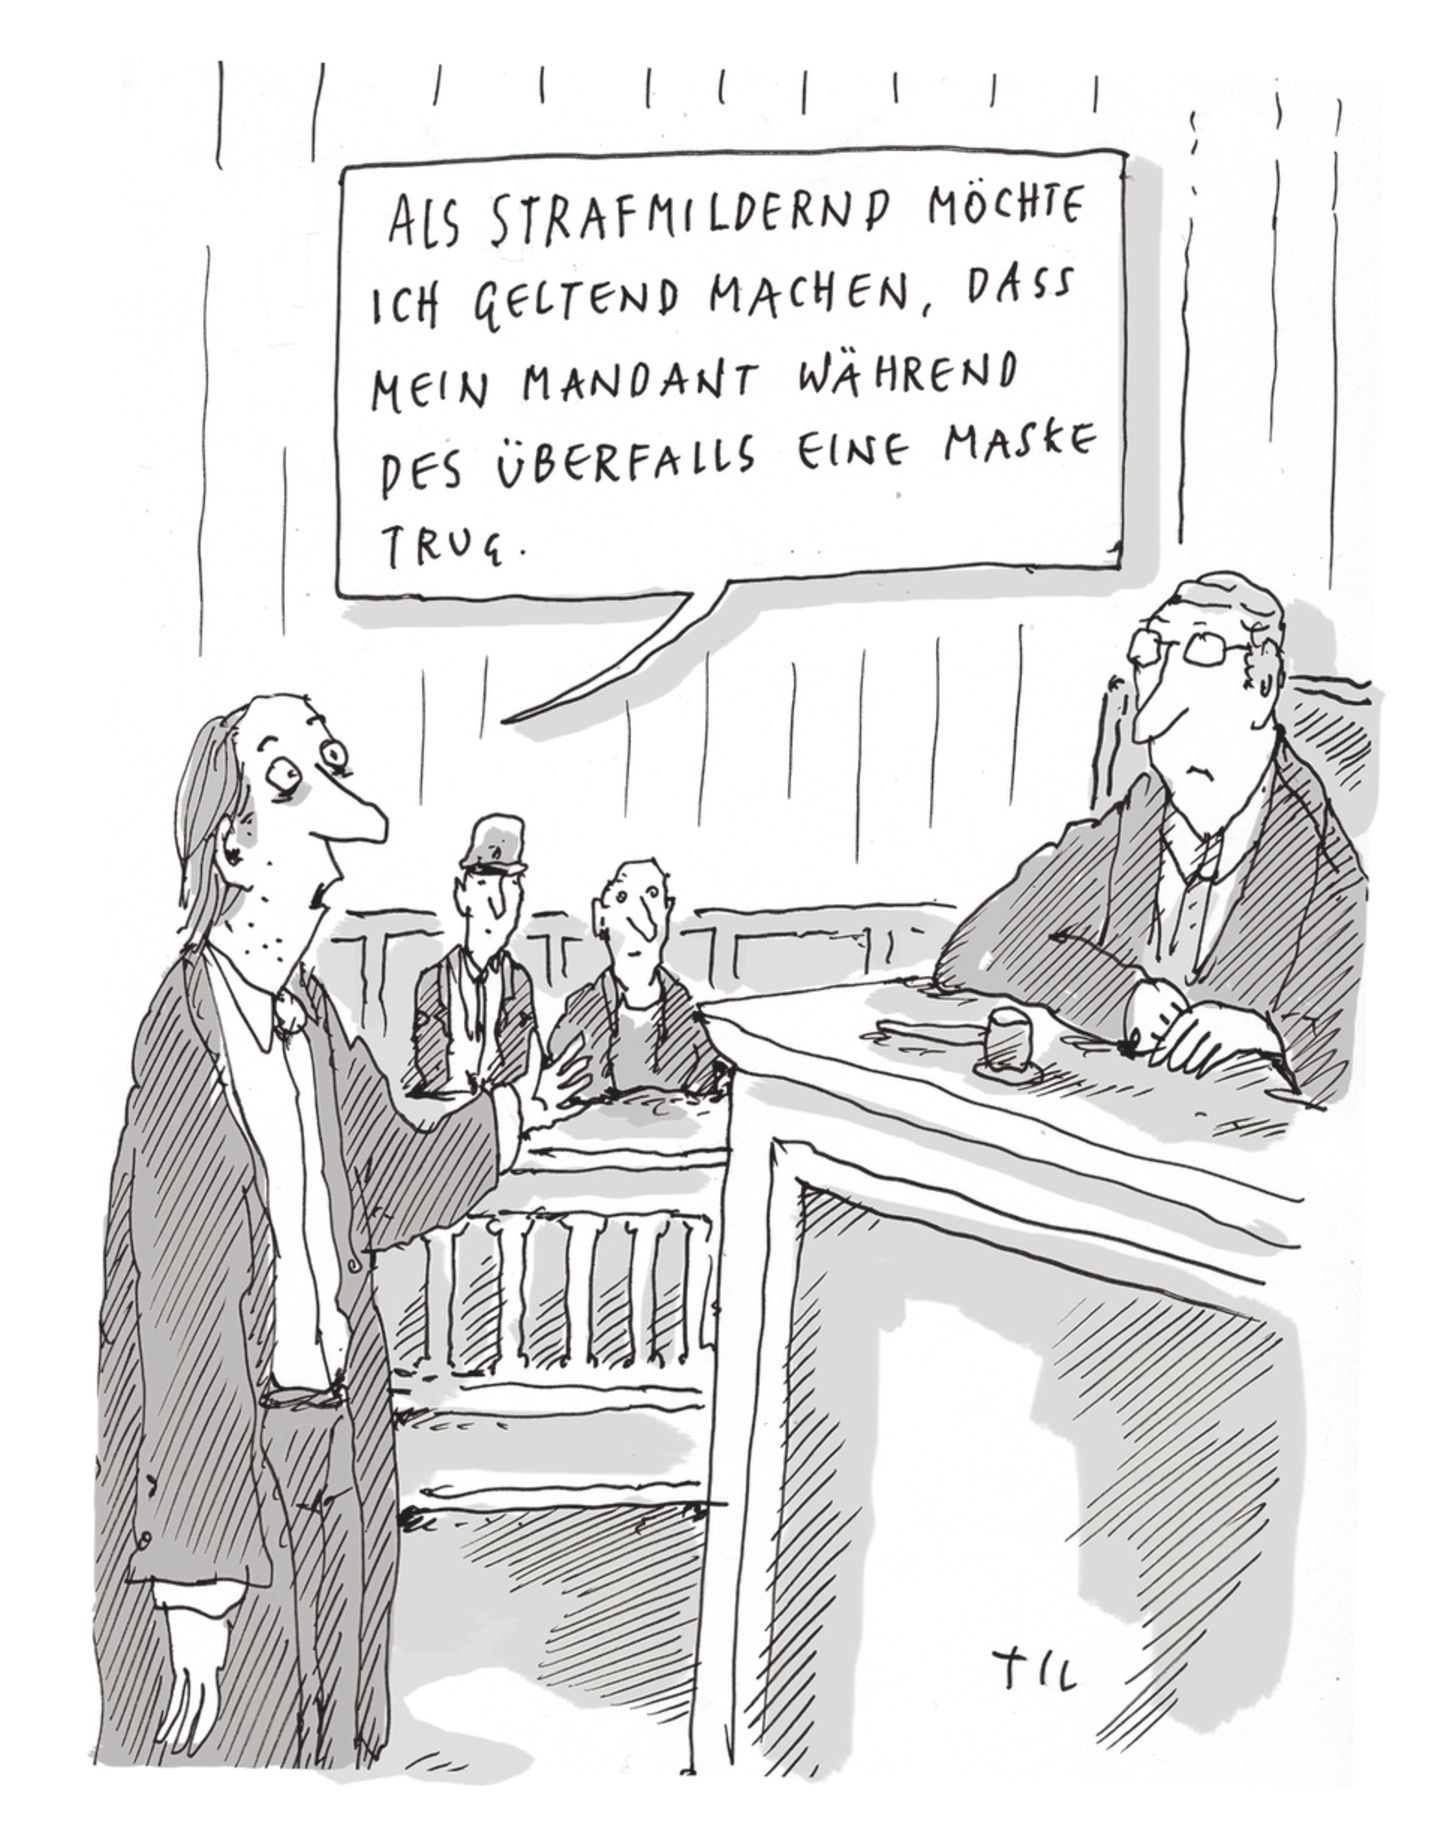 ALS STRAFMILDERND MÖCHTE
ICH GELTEND MACHEN, DASS
MEIN MANDANT WÄHREND
DES ÜBERFALLS EINE MASKE
TRUG.
TIL